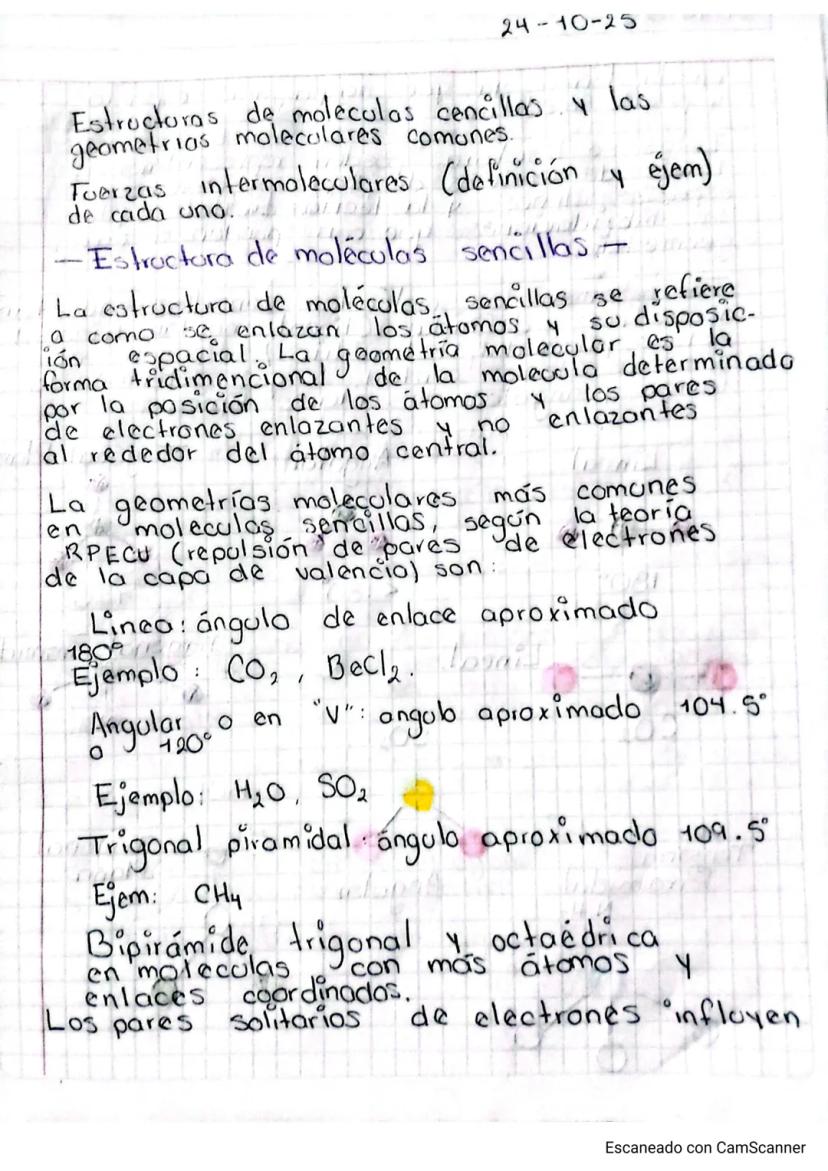 24-10-25
Estructuras de moleculas cencillas y las
geometrias moleculares comunes.
Fuerzas intermoleculares (definición y ejem)
de cada uno.
- Estructura de moléculas sencillas -
La estructura de moléculas sencillas se refiere
a como se enlazan los átomos y su disposic-
ión espacial. La geometría molecular es la
forma tridimencional de la molecula determinado
por la posición de los átomos y los pares
de electrones enlazantes y no enlazantes
al rededor del átomo central.
La geometrías moleculares más comunes
en moleculas sencillas, según la teoría
RPECU (repulsión de pares de electrones
de la capa de valencia) son:
Linea: ángulo de enlace aproximado
180°
Ejemplo: CO₂, BeCl₂.
Angular o en "V": angulo aproximado 104.5°
o 120°
Ejemplo: H₂O, SO₂
Trigonal piramidal: ángulo aproximado 109.5°
Ejem: CH₄
Bipirámide trigonal y octaédrica
en moleculas con más átomos y
enlaces coordinados.
Los pares solitarios de electrones influyen
Escaneado con CamScanner